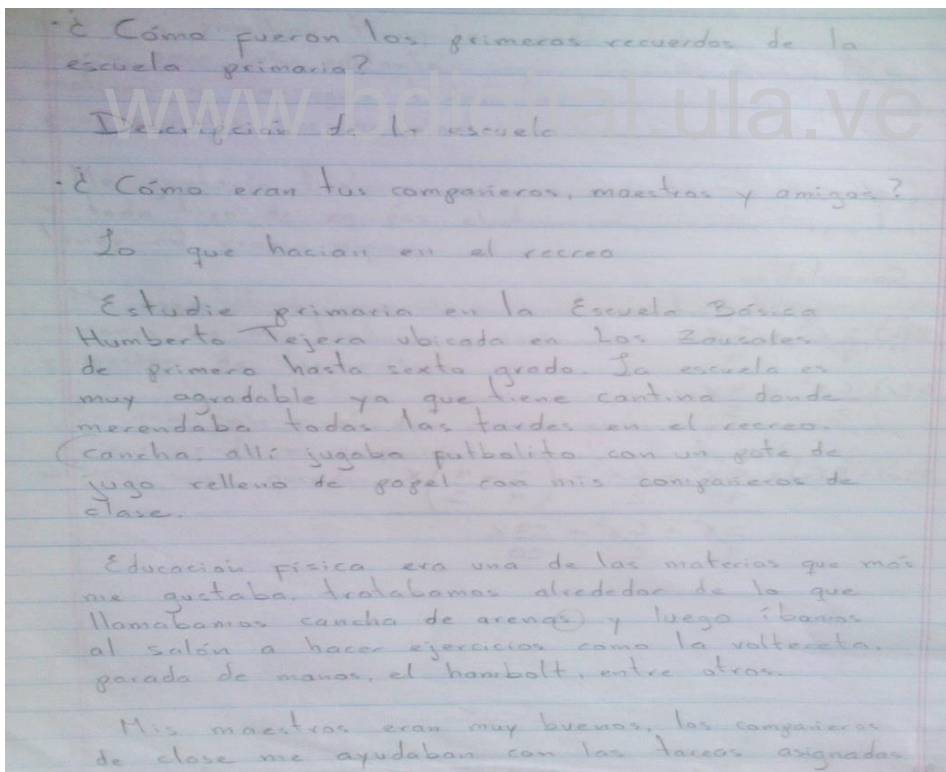 ·¿ Cómo fueron los primeros recuerdos de la
escuela primaria?
www.bdigital.ula.ve
Descripción de la escuela
·¿ Cómo eran tus compañeros, maestros y amigos?
Lo que hacían en el recreo
Estudie primaria en la Escuela Básica
Humberto Tejera ubicada en Los Zausales
de primero hasta sexto grado. La escuela es
muy agradable ya que tiene cantina donde
merendaba todas las tardes en el recreo.
(cancha, allí jugaba futbolito con un pote de
jugo relleno de papel con mis compañeros de
clase.
Educación física era una de las materias que más
me gustaba, trotabamos alrededor de lo que
llamabamos cancha de arenas y luego íbamos
al salón a hacer ejercicios como la voltereta,
parada de manos, el hambolt, entre otros.
Mis maestros eran muy buenos, los compañeros
de clase me ayudaban con las tareas asignadas